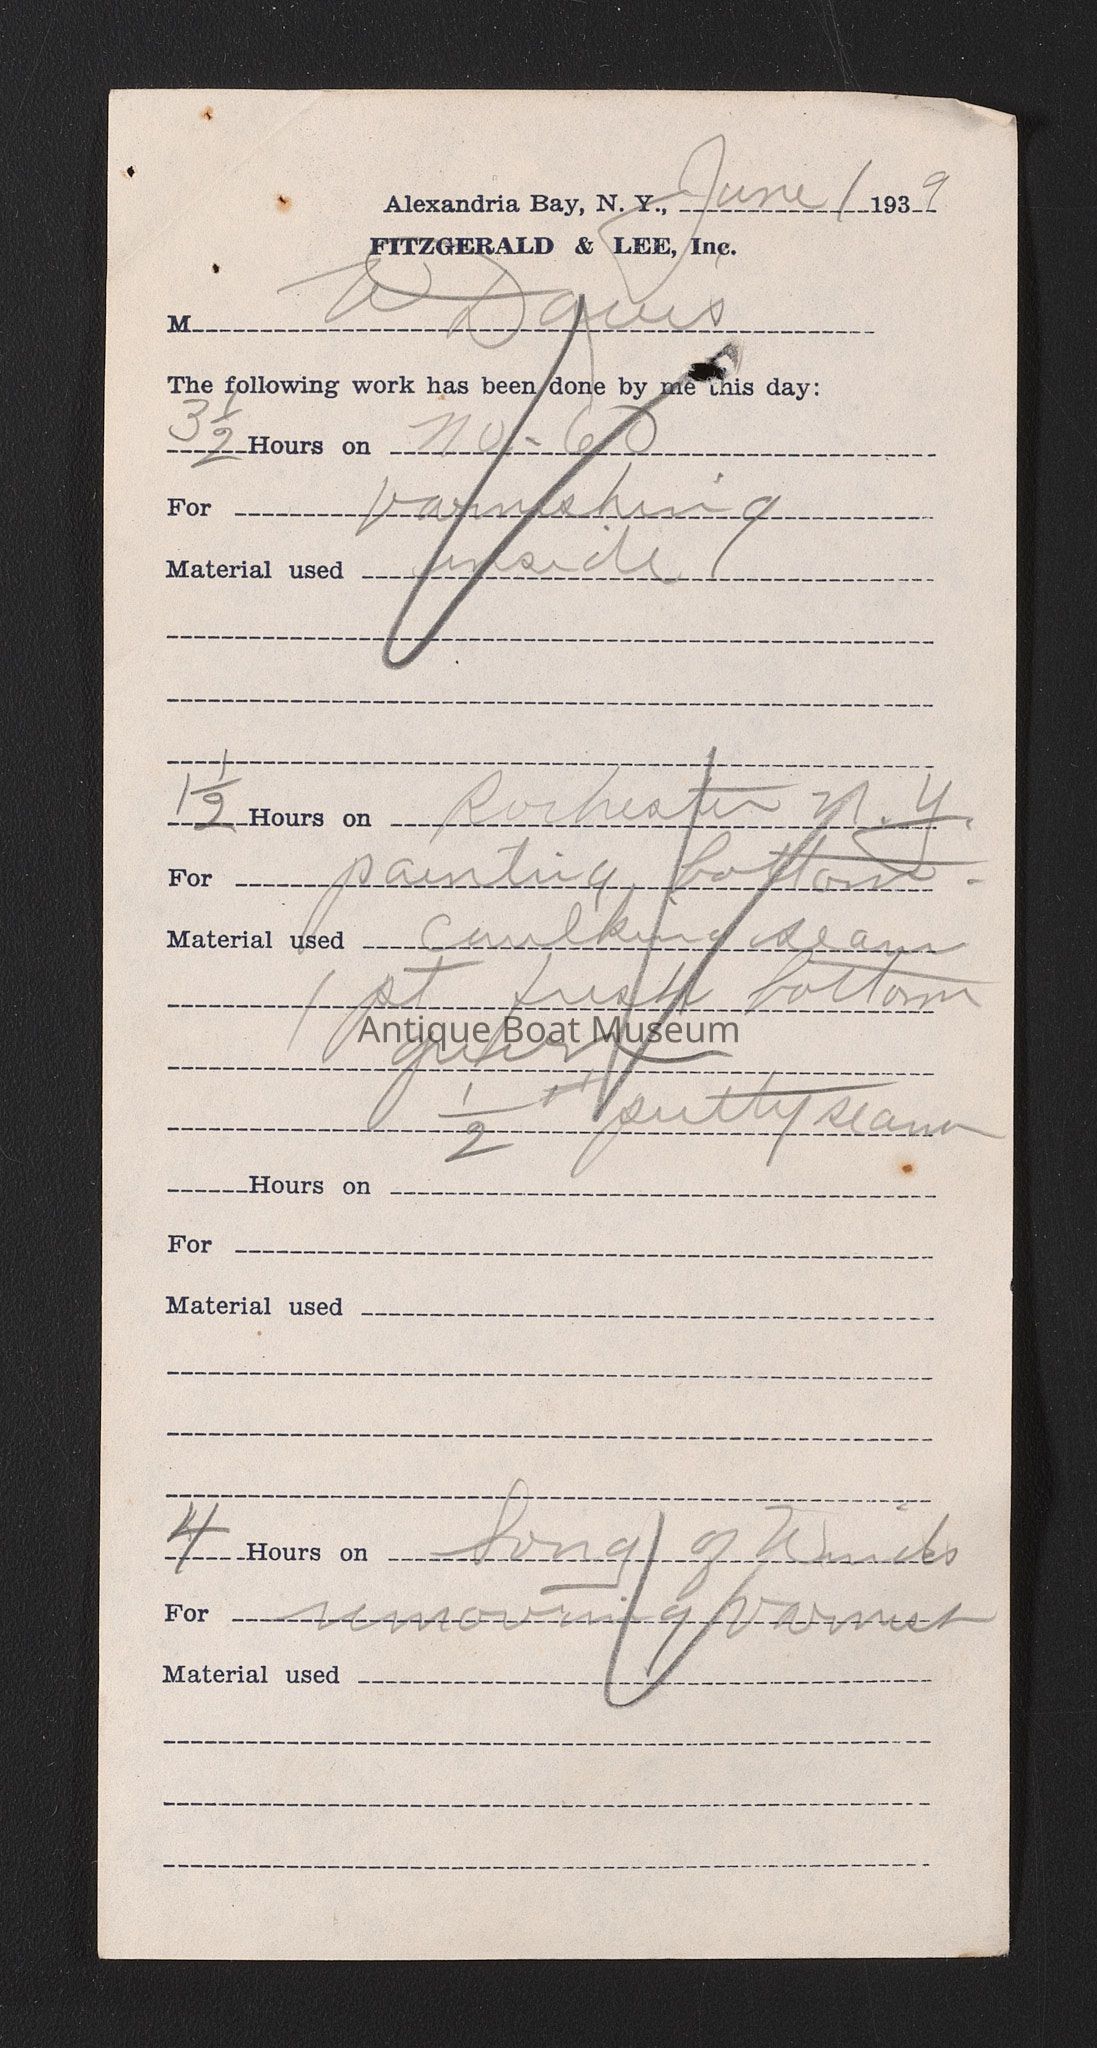 Alexandria Bay, N. Y., June 1 1939
FITZGERALD & LEE, Inc.
M W Davis
The following work has been done by me this day:
3 1/2 Hours on No-60
For varnishing
Material used inside
1 1/2 Hours on Rochester N.Y.
For painting bottom-
Material used caulking seam
1 pt bottom
Antique Boat Museum
1/2 " putty seam
Hours on
For
Material used
4 Hours on Song of Winds
For removing varnish
Material used